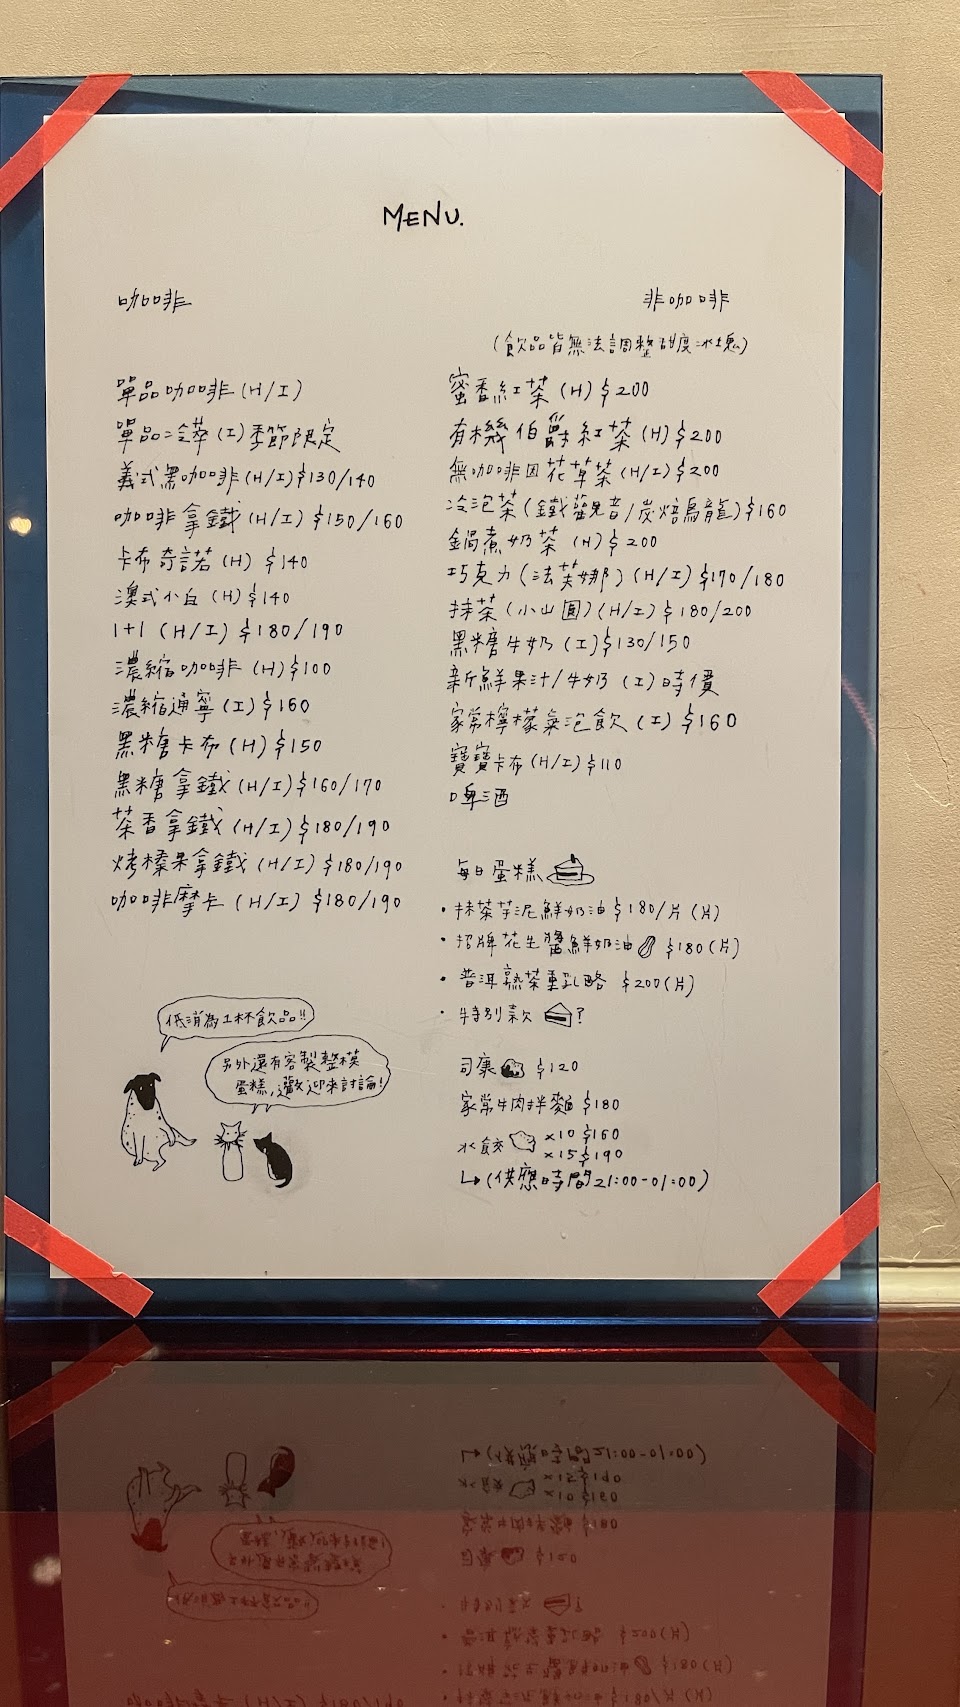 MENU.
咖啡
單品咖啡(H/I)
單品冷萃(I)季節限定
義式黑咖啡(H/I)$130/140
咖啡拿鐵(H/I)$150/160
卡布奇諾(H)$140
澳式小白(H)$140
1+1(H/I)$180/190
濃縮咖啡(H)$100
濃縮通寧(I)$160
黑糖卡布(H)$150
黑糖拿鐵(H/I)$160/170
茶香拿鐵(H/I)$180/190
烤榛果拿鐵(H/I)$180/190
咖啡摩卡(H/I)$180/190
低消為1杯飲品!!
另外還有客製整模
蛋糕,歡迎來討論!
非咖啡
(飲品皆無法調整甜度冰塊)
蜜香紅茶(H)$200
有機伯爵紅茶(H)$200
無咖啡因花草茶(H/I)$200
冷泡茶(鐵觀音/炭焙烏龍)$160
鍋煮奶茶(H)$200
巧克力(法芙娜)(H/I)$170/180
抹茶(小山園)(H/I)$180/200
黑糖牛奶(I)$130/150
新鮮果汁/牛奶(I)時價
家常檸檬氣泡飲(I)$160
寶寶卡布(H/I)$110
啤酒
每日蛋糕
・抹茶芋泥鮮奶油$180/片(片)
・招牌花生醬鮮奶油$180(片)
・普洱熟茶重乳酪$200(片)
・特別款?
司康$120
家常牛肉拌麵$180
水餃 x10 $160
x15 $190
↳(供應時間21:00-01:00)